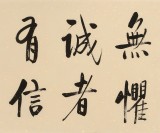 無懼
誠者
有信